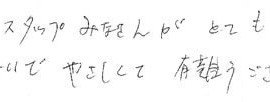 スタッフ みなさんが とても
いで やさしくて 有難うご